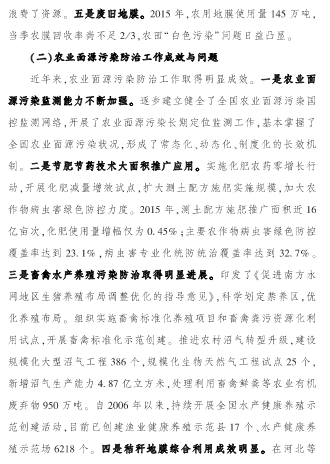 浪费了资源。五是废旧地膜。2015年,农用地膜使用量145万吨,
当季农膜回收率尚不足2/3,农田“白色污染”问题日益凸显。
(二)农业面源污染防治工作成效与问题
近年来,农业面源污染防治工作取得明显成效。一是农业面
源污染监测能力不断加强。逐步建立健全了全国农业面源污染国
控监测网络,开展了农业面源污染长期定位监测工作,基本掌握了
全国农业面源污染状况,形成了常态化、动态化、制度化的长效机
制。二是节肥节药技术大面积推广应用。实施化肥农药零增长行
动,开展化肥减量增效试点,扩大测土配方施肥实施规模,加大农
作物病虫害绿色防控力度。2015年,测土配方施肥推广面积近16
亿亩次,化肥使用量增幅仅为0.45%;主要农作物病虫害绿色防控
覆盖率达到23.1%,病虫害专业化统防统治覆盖率达到32.7%。
三是畜禽水产养殖污染防治取得明显进展。印发了《促进南方水
网地区生猪养殖布局调整优化的指导意见》,科学划定禁养区,优
化养殖布局。组织实施畜禽标准化养殖项目和畜禽粪污资源化利
用试点,开展畜禽标准化示范创建。推进农村沼气转型升级,建设
规模化大型沼气工程386个,规模化生物天然气工程试点25个,
新增沼气生产能力4.87亿立方米,处理利用畜禽粪等农业有机
废弃物950万吨。自2006年以来,持续开展全国水产健康养殖示
范创建活动,目前已创建渔业健康养殖示范县17个、水产健康养
殖示范场6218个。四是秸秆地膜综合利用成效明显。在河北等